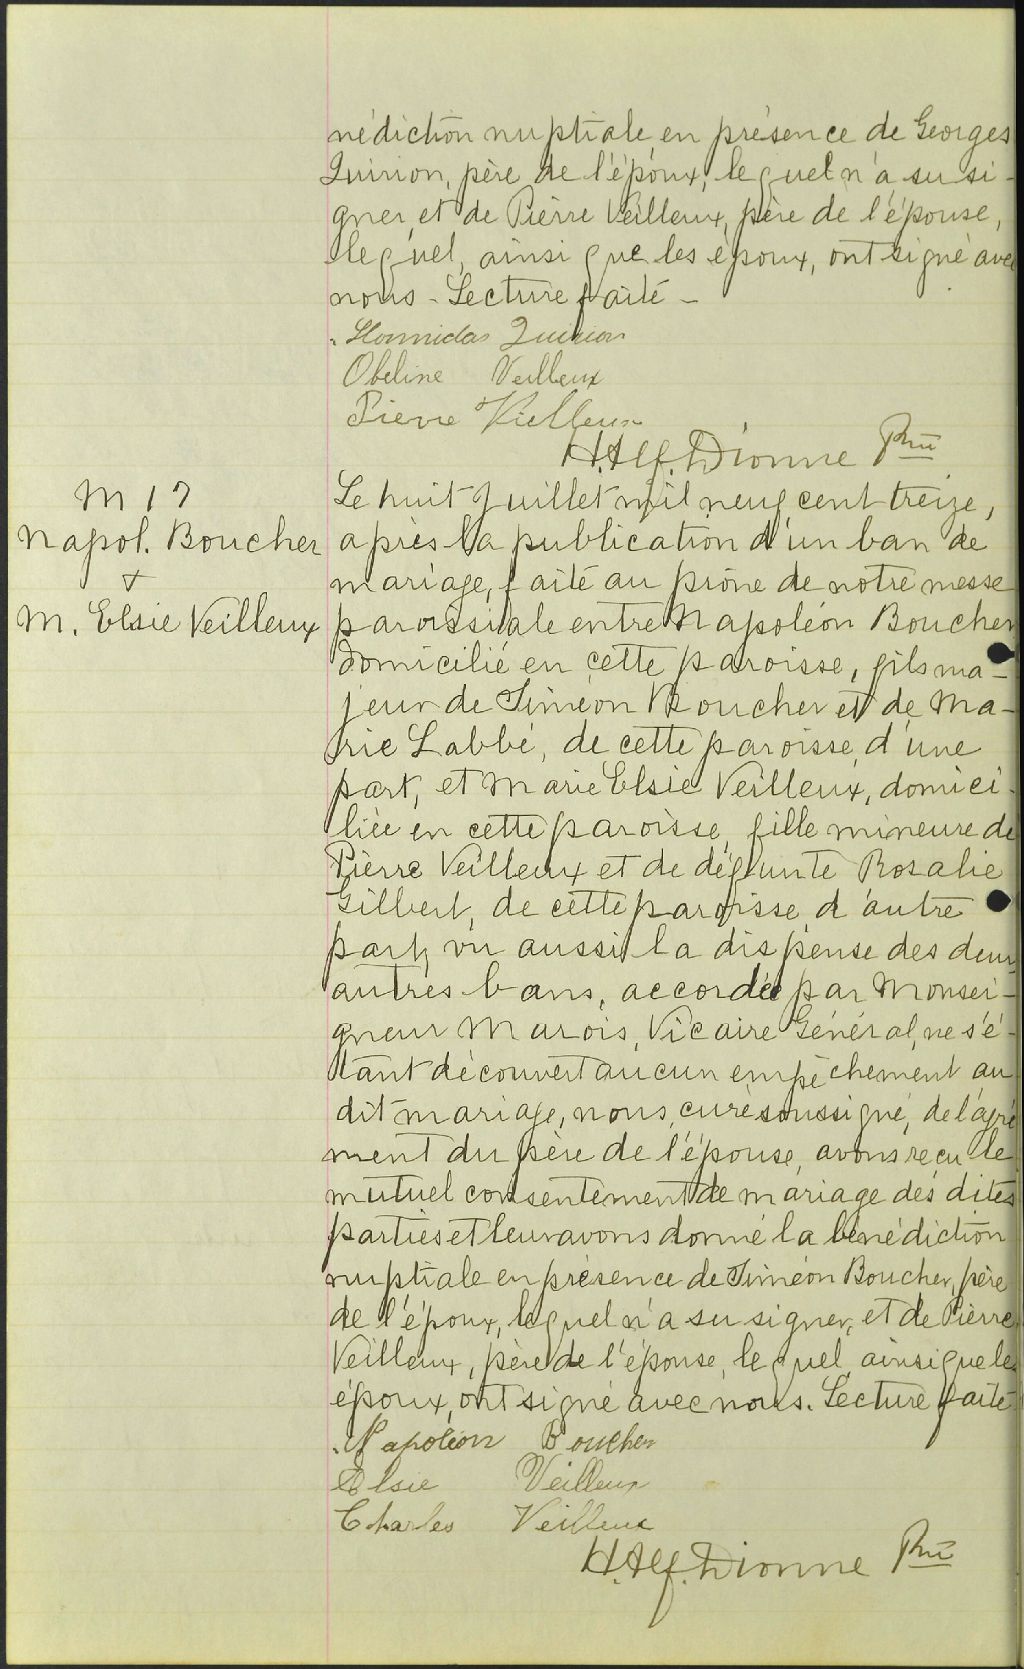 nédiction nuptiale, en présence de Georges
Quirion, père de l'époux, lequel n'a su si-
gner, et de Pierre Veilleux, père de l'épouse,
lequel, ainsi que les époux, ont signé avec
nous - Lecture faite -
Hormidas Quirion
Obeline Veilleux
Pierre Vielleux
H. Alf. Dionne Ptre
M 17
Napol. Boucher
+
M. Elsie Veilleux
Le huit Juillet mil neuf cent treize,
après la publication d'un ban de
mariage, faite au prône de notre messe
paroissiale entre Napoléon Boucher
domicilié en cette paroisse, fils ma-
jeur de Siméon Boucher et de Ma-
rie Labbé, de cette paroisse, d'une
part, et Marie Elsie Veilleux, domici-
liée en cette paroisse, fille mineure de
Pierre Veilleux et de défunte Rosalie
Gilbert, de cette paroisse, d'autre
part, vu aussi la dispense des deux
autres bans, accordée par Monsei-
gneur Marois, Vicaire Général, ne s'é-
tant découvert aucun empêchement au
dit mariage, nous, curé soussigné, de l'agré
ment du père de l'épouse, avons reçu le
mutuel consentement de mariage des dites
parties et leur avons donné la bénédiction
nuptiale en présence de Siméon Boucher, père
de l'époux, lequel n'a su signer, et de Pierre
Veilleux, père de l'épouse, lequel, ainsi que les
époux, ont signé avec nous. Lecture faite
Napoléon Boucher
Elsie Veilleux
Charles Veilleux
H. Alf. Dionne Ptre